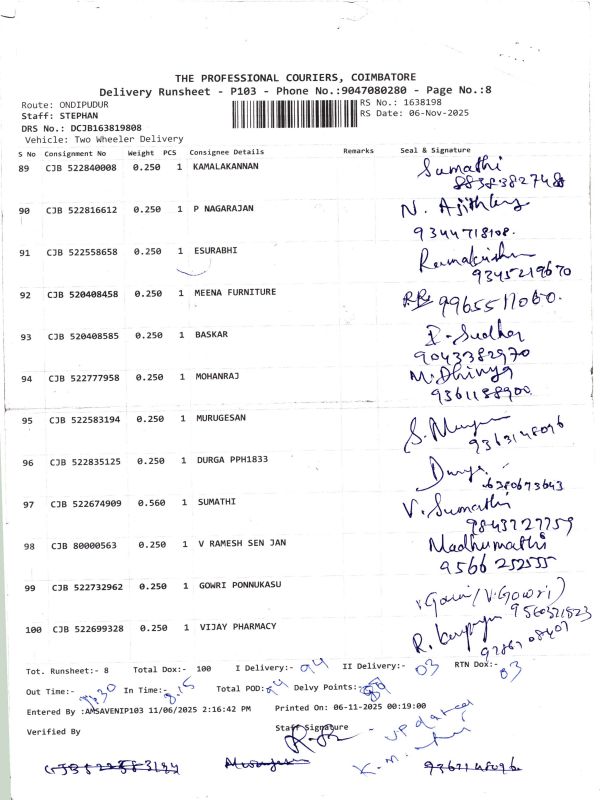 THE PROFESSIONAL COURIERS, COIMBATORE
Delivery Runsheet - P103 - Phone No.:9047080280 - Page No.:8
Route: ONDIPUDUR RS No.: 1638198
Staff: STEPHAN RS Date: 06-Nov-2025
DRS No.: DCJB163819808
Vehicle: Two Wheeler Delivery
S No Consignment No Weight PCS Consignee Details Remarks Seal & Signature
89 CJB 522840008 0.250 1 KAMALAKANNAN Sumathi
8838382748
90 CJB 522816612 0.250 1 P NAGARAJAN N.
9344718108.
91 CJB 522558658 0.250 1 ESURABHI Ramakrishn
9345219670
92 CJB 520408458 0.250 1 MEENA FURNITURE 9965517060.
93 CJB 520408585 0.250 1 BASKAR Sudhar
9043382970
94 CJB 522777958 0.250 1 MOHANRAJ M. Dhivya
9361188900
95 CJB 522583194 0.250 1 MURUGESAN S.
9363148096
96 CJB 522835125 0.250 1 DURGA PPH1833 Durga
6380673643
97 CJB 522674909 0.560 1 SUMATHI V. Sumathi
9843727759
98 CJB 80000563 0.250 1 V RAMESH SEN JAN Madhumathi
9566252555
99 CJB 522732962 0.250 1 GOWRI PONNUKASU Gowri (V.Gowri)
9560321823
100 CJB 522699328 0.250 1 VIJAY PHARMACY R.
9786708407
Tot. Runsheet:- 8 Total Dox:- 100 I Delivery:- 94 II Delivery:- 03 RTN Dox:- 03
Out Time:- 9.30 In Time:- 8.15 Total POD: 94 Delvy Points:
Entered By :AMSAVENIP103 11/06/2025 2:16:42 PM Printed On: 06-11-2025 00:19:00
Verified By Staff Signature - updated
K.m.
CJB 522583194 Murugesan 9363148096